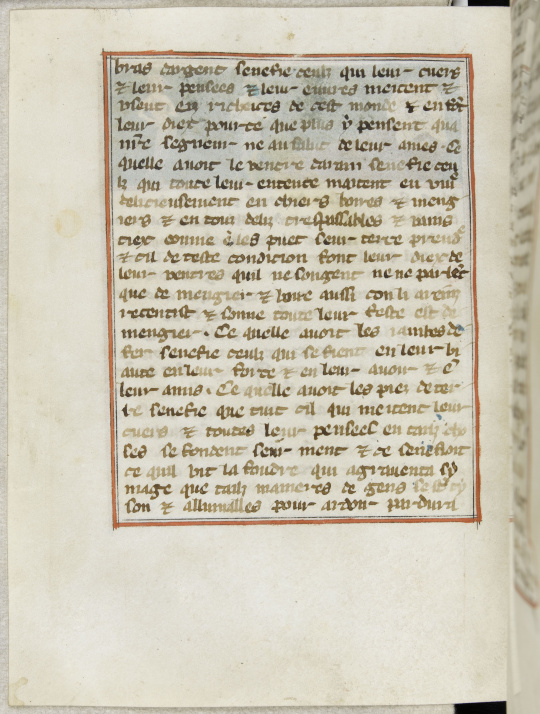 bras dargent senefie ceulz qui leur cuers
& leur pensees & leur euures mettent &
usent en richeces de cest monde & en font
leur diex pource que plus y pensent qua
nre segneur ne au salut de leur ames. Ce
quelle auoit le ventre darain senefie ceu
lz qui toute leur entente mettent en viure
delicieusement en chiers boires & meng
iers & en tout deliz trespassables & vains
tiex comme les puet seur terre prendre
& cil de ceste condicion font leur diex de
leur ventres quil ne songent ne ne parlent
que de mengier & boire aussi con li arains
retentist & sonne toute leur feste est de
mengier. Ce quelle auoit les iambes de
fer senefie ceulz qui se fient en leur bi
aute en leur force & en leur auoir & en
leur amis. Ce quelle auoit les piez de ter
re senefie que tuit cil qui mettent leur
cuers & toutes leur pensees en teulz cho
ses se fondent ment & ce senefioit
ce quil vit la foudre qui agrauenta
mage que tielz manieres de gens
son & allumalles pour ardoir